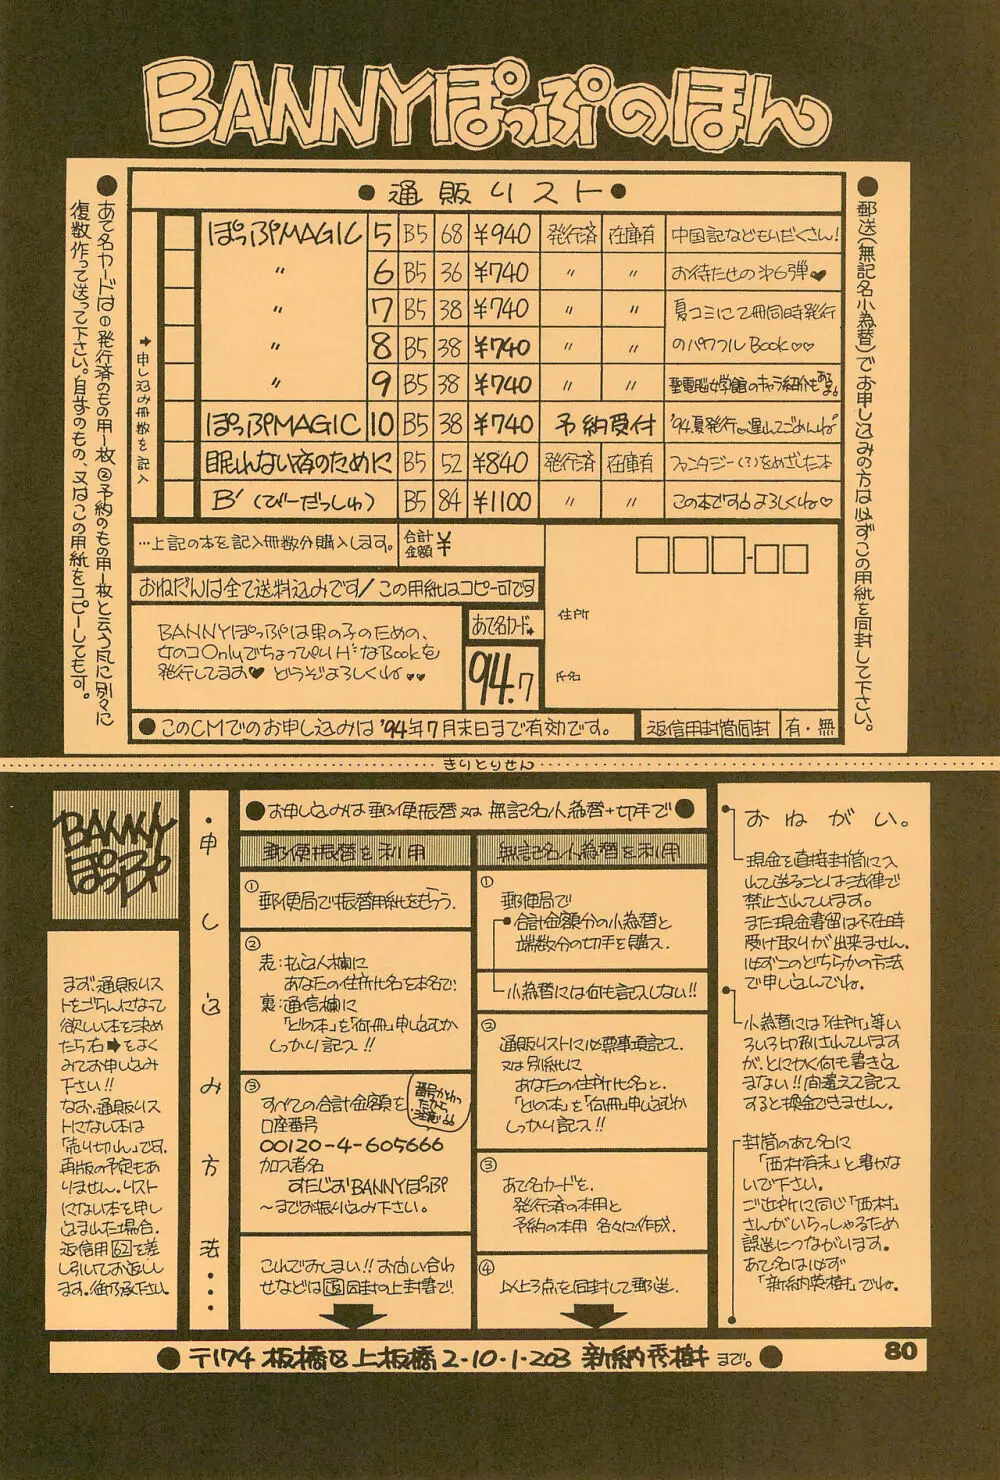 BANNYぽっぷのほん
●通販リスト●
ぽっぷMAGIC 5 B5 68 ¥940 発行済 在庫有 中国記などもりだくさん!
〃 6 B5 36 ¥740 〃 〃 お待たせの第6弾♥
〃 7 B5 38 ¥740 〃 〃 夏コミにて2冊同時発行
〃 8 B5 38 ¥740 〃 〃 のパワフルBook♡♡
〃 9 B5 38 ¥740 〃 〃 聖電脳女学館のキャラ紹介も
ぽっぷMAGIC 10 B5 38 ¥740 予約受付 '94夏発行♡遅れてごめんね
眠れない夜のために B5 52 ¥840 発行済 在庫有 ファンタジー(?)をめざした本
B′(びーだっしゅ) B5 84 ¥1100 〃 〃 この本です。よろしくね♡
➡申し込み冊数を記入
…上記の本を記入冊数分購入します。
合計金額 ¥
おねだんは全て送料込みです/この用紙はコピー可です
BANNYぽっぷは男の子のための、
女のコOnlyでちょっぴりHなBookを
発行してます♥どうぞよろしくね♥♥
あて名カード➡
94.7
住所
氏名
●このCMでのお申し込みは'94年7月末日まで有効です。
返信用封筒同封 有・無
●郵送(無記名小為替)でお申し込みの方は必ずこの用紙を同封して下さい。
●あて名カードは①発行済のもの用1枚②予約のもの用1枚と云う風に別々に
復数作って送って下さい。自作のもの、又はこの用紙をコピーしても可。
きりとりせん
BANNY
ぽっぷ
まず、通販リス
トをごらんになって
欲しい本を決め
たら右➡をよく
みてお申し込み
下さい!!
なお、通販リス
トにない本は
「売り切れ」です。
再版の予定もあ
りません。リスト
にない本を申し
込まれた場合、
返信用62を差
し引いてお返しし
ます。御了承下さい。
・申し込み方法・・・
●お申し込みは郵便振替又は無記名小為替+切手で●
郵便振替を利用
①
郵便局で振替用紙をもらう。
②
表:払込人欄に
あなたの住所氏名を本名で。
裏:通信欄に
「どの本」を「何冊」申し込むか
しっかり記入!!
③
すべての合計金額を
番号かわったから注意!
口座番号
00120-4-605666
加入者名
すたじおBANNYぽっぷ
〜までお振り込み下さい。
これでおしまい!!お問い合わ
せなどは同封の上封書で。
無記名小為替を利用
①
郵便局で
●合計金額分の小為替と
端数分の切手を購入。
小為替には何も記入しない!!
②
通販リストに必要事項記入。
又は別紙に
あなたの住所氏名と、
「どの本」を「何冊」申し込むか
しっかり記入!!
③
あて名カードを、
発行済の本用と
予約の本用 各々に作成。
④
以上3点を同封して郵送。
おねがい。
現金を直接封筒に入
れて送ることは法律で
禁止されています。
また現金書留は不在時
受け取りが出来ません。
必ずこのどちらかの方法
で申し込んでね。
小為替には「住所」等い
ろいろ印刷されています
が、とにかく何も書き込
まない!!間違えて記入
すると換金できません。
封筒のあて名に
「西村有未」と書かな
いで下さい。
ご近所に同じ「西村」
さんがいらっしゃるため
誤送につながります。
あて名は必ず
「新納秀樹」でね。
●〒174 板橋区上板橋2-10-1-203 新納秀樹まで。●
80